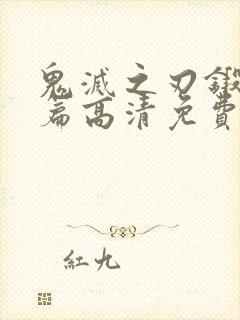 鬼滅之刃鍛
篇高清免費
紅九